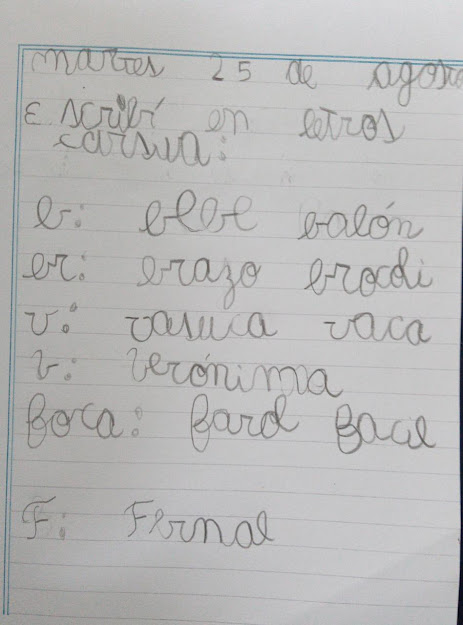 martes 25 de agosto
Escribí en letras
carsiva:
b: bebe balón
br: brazo brocoli
v: vasuca vaca
V: Verónima
foca: farol facil
F: Fernal